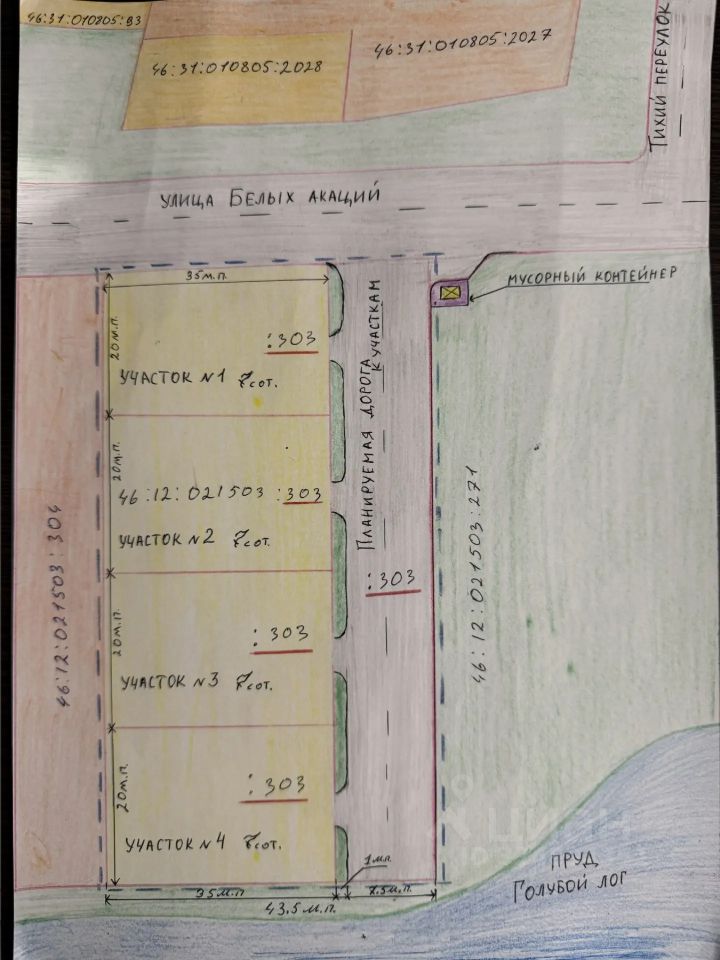 46:31:010805:93
46:31:010805:2028
46:31:010805:2027
ТИХИЙ ПЕРЕУЛОК
УЛИЦА БЕЛЫХ АКАЦИЙ
35М.П.
МУСОРНЫЙ КОНТЕЙНЕР
20М.П.
:303
УЧАСТОК N1 7СОТ.
ПЛАНИРУЕМАЯ ДОРОГА
К УЧАСТКАМ
20М.П.
46:12:021503:303
УЧАСТОК N2 7СОТ.
46:12:021503:304
46:12:021503:271
:303
20М.П.
:303
УЧАСТОК N3 7СОТ.
20М.П.
:303
УЧАСТОК N4 7СОТ.
1МП.
35М.П
7.5М.П.
43,5М.П.
ПРУД
ГОЛУБОЙ ЛОГ
ЦИАН